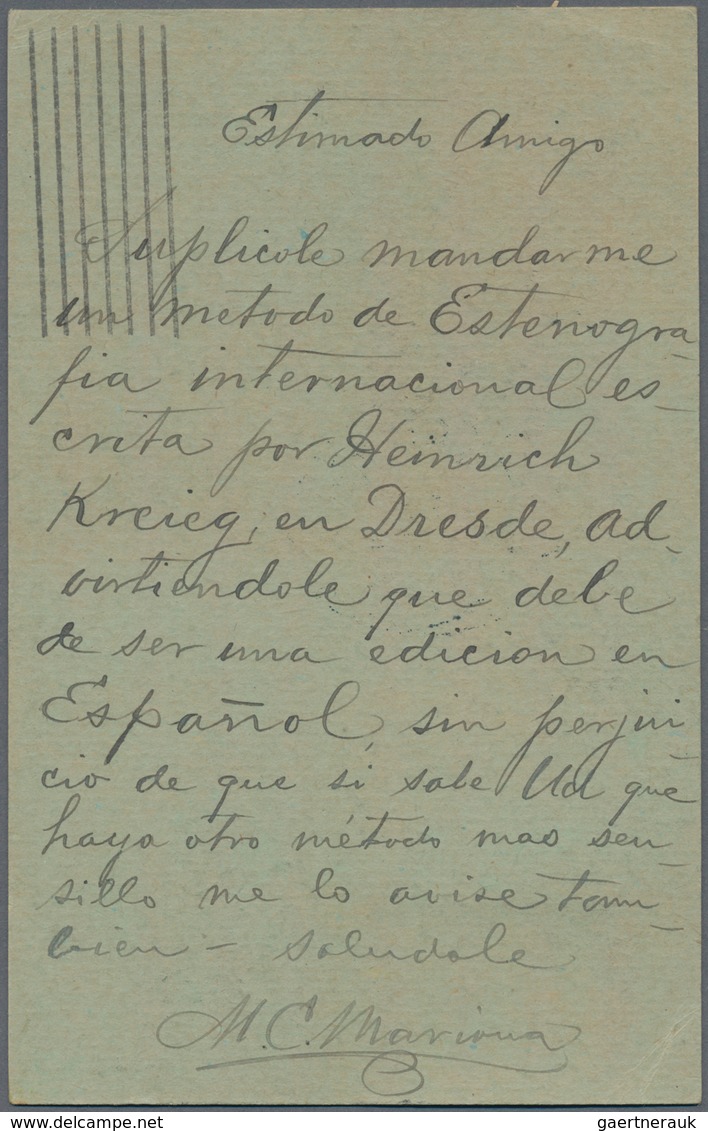 Estimado Amigo
Suplicole mandarme
un metodo de Estenogra-
fia internacional es-
crita por Heinrich
Kreieg, en Dresde, ad-
virtiendole que debe
de ser una edicion en
Español, sin perjui-
cio de que si sabe Ud que
haya otro método mas sen-
sillo me lo avise tam-
bien - saludale
M. C. Mariona
delcampe.net
gaertnerauk